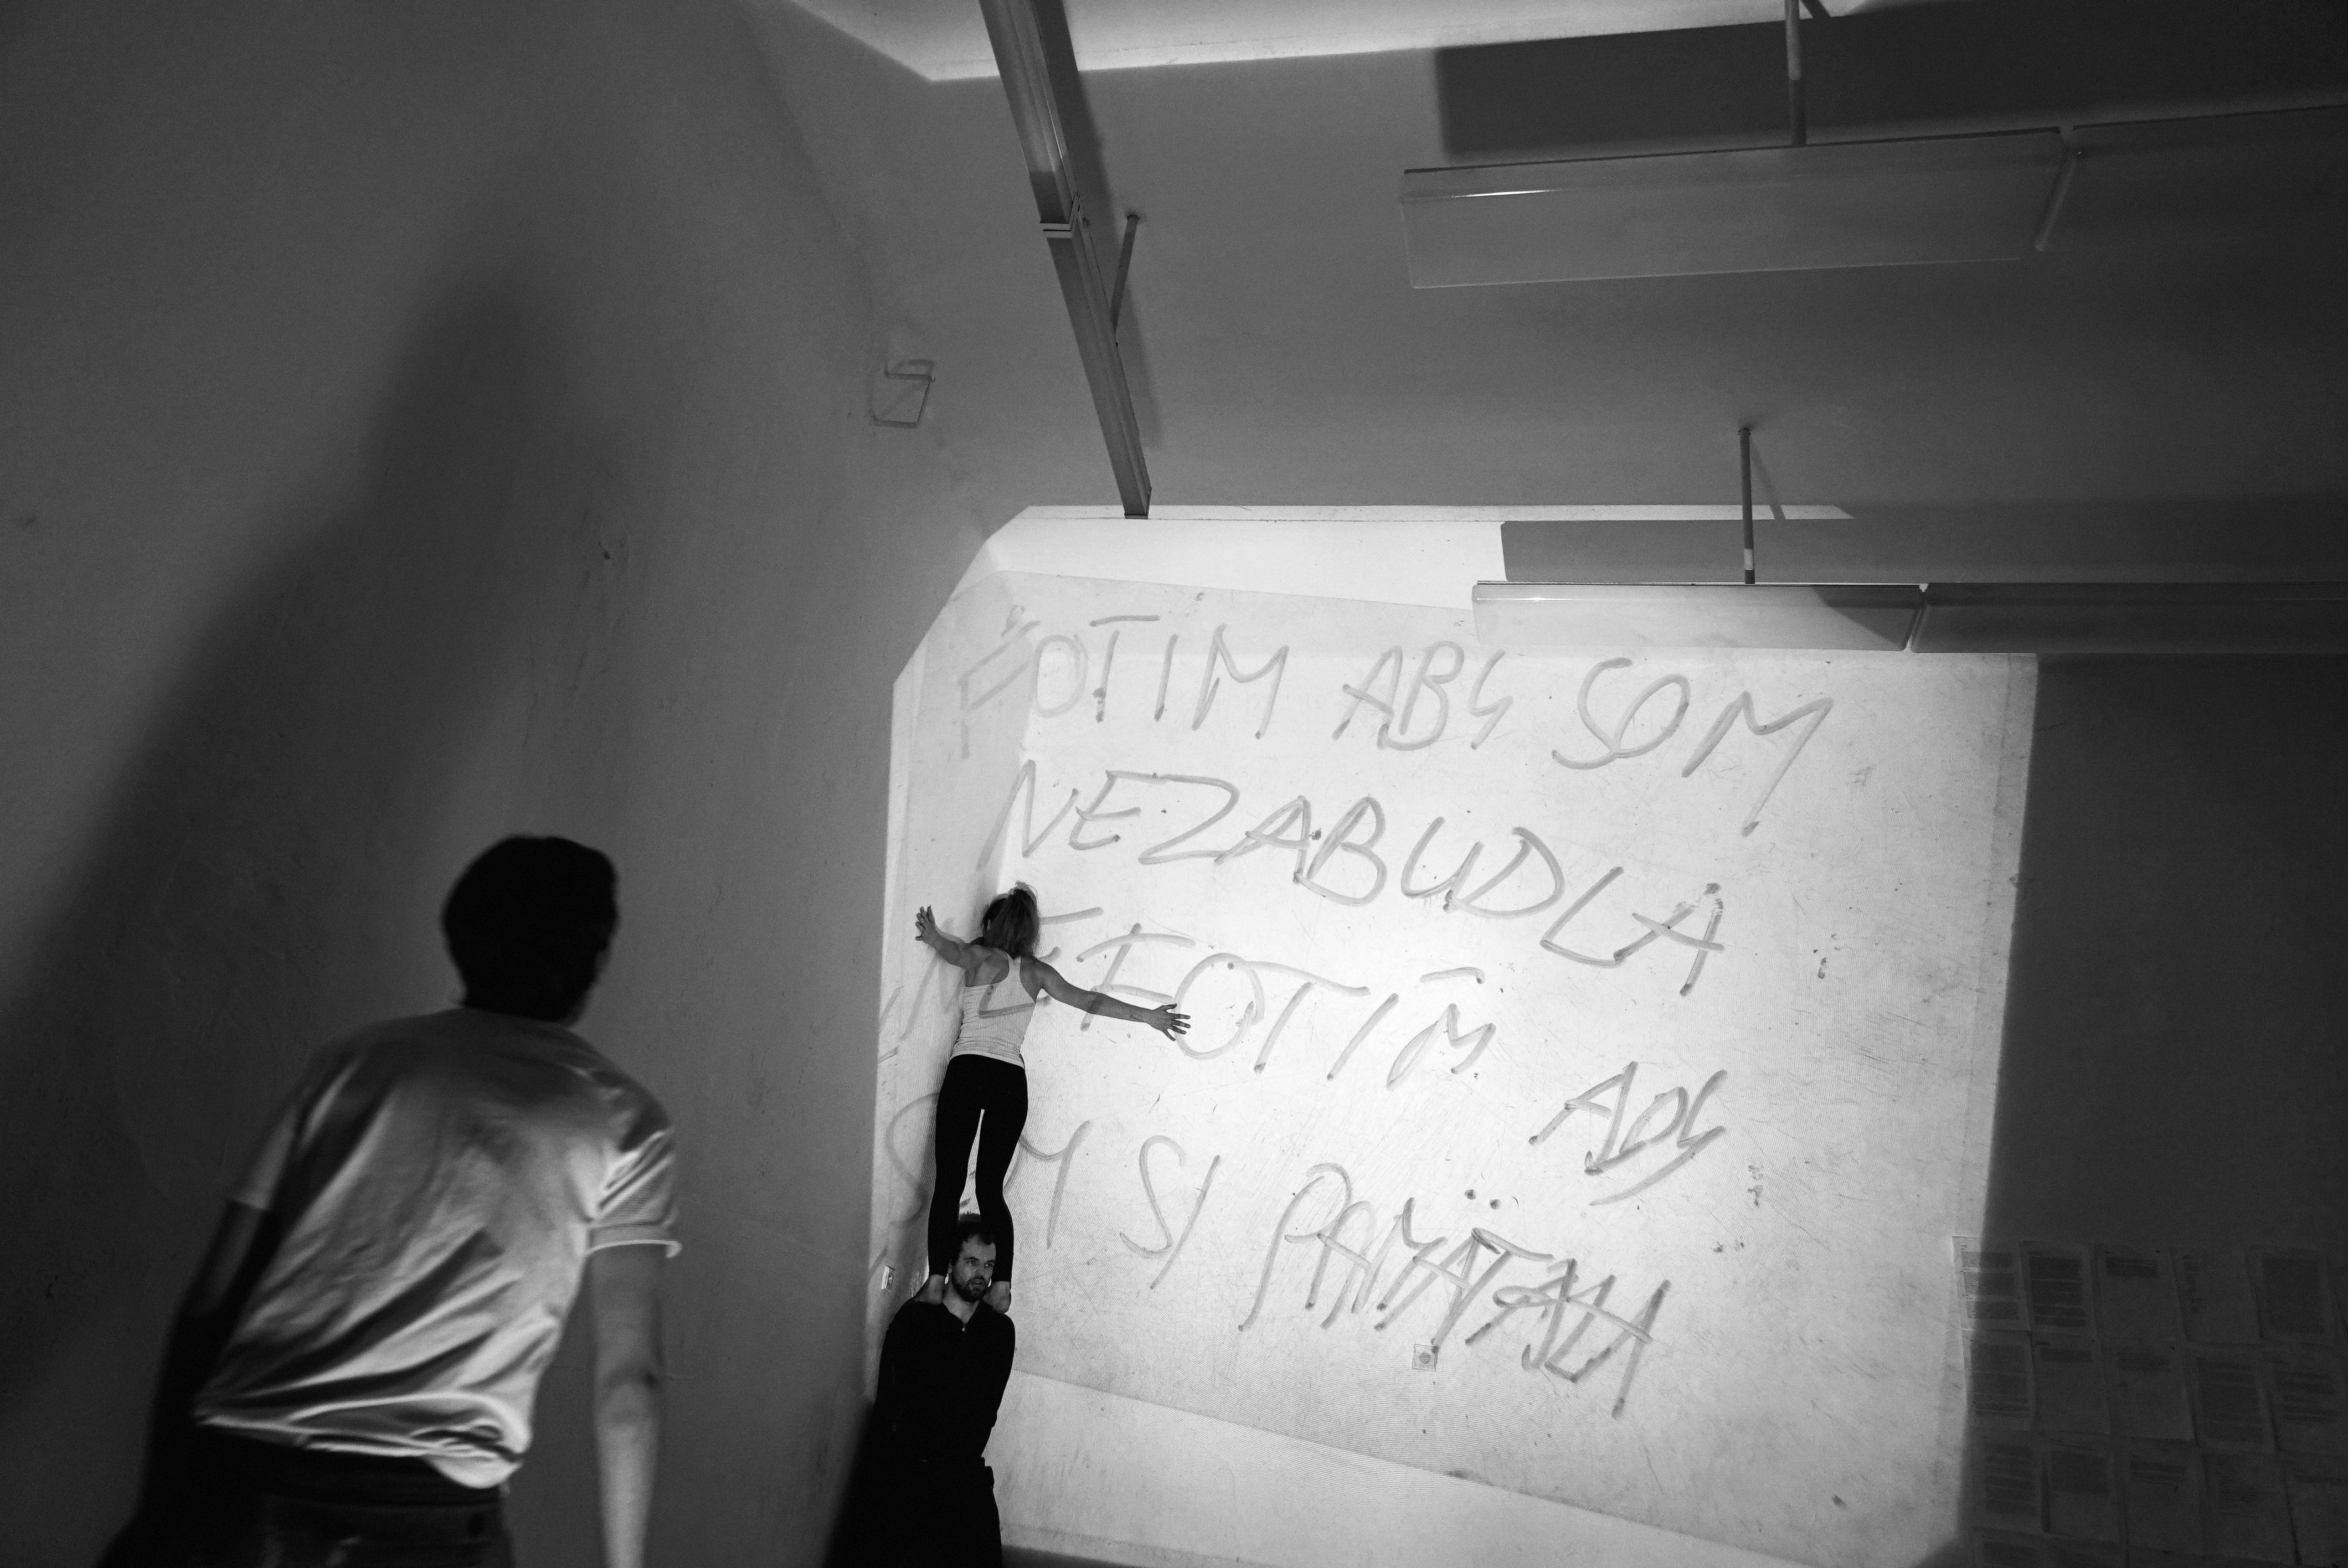 FOTIM ABY SOM
NEZABUDLA
NEFOTÍM ABY
SOM SI PAMÄTALA